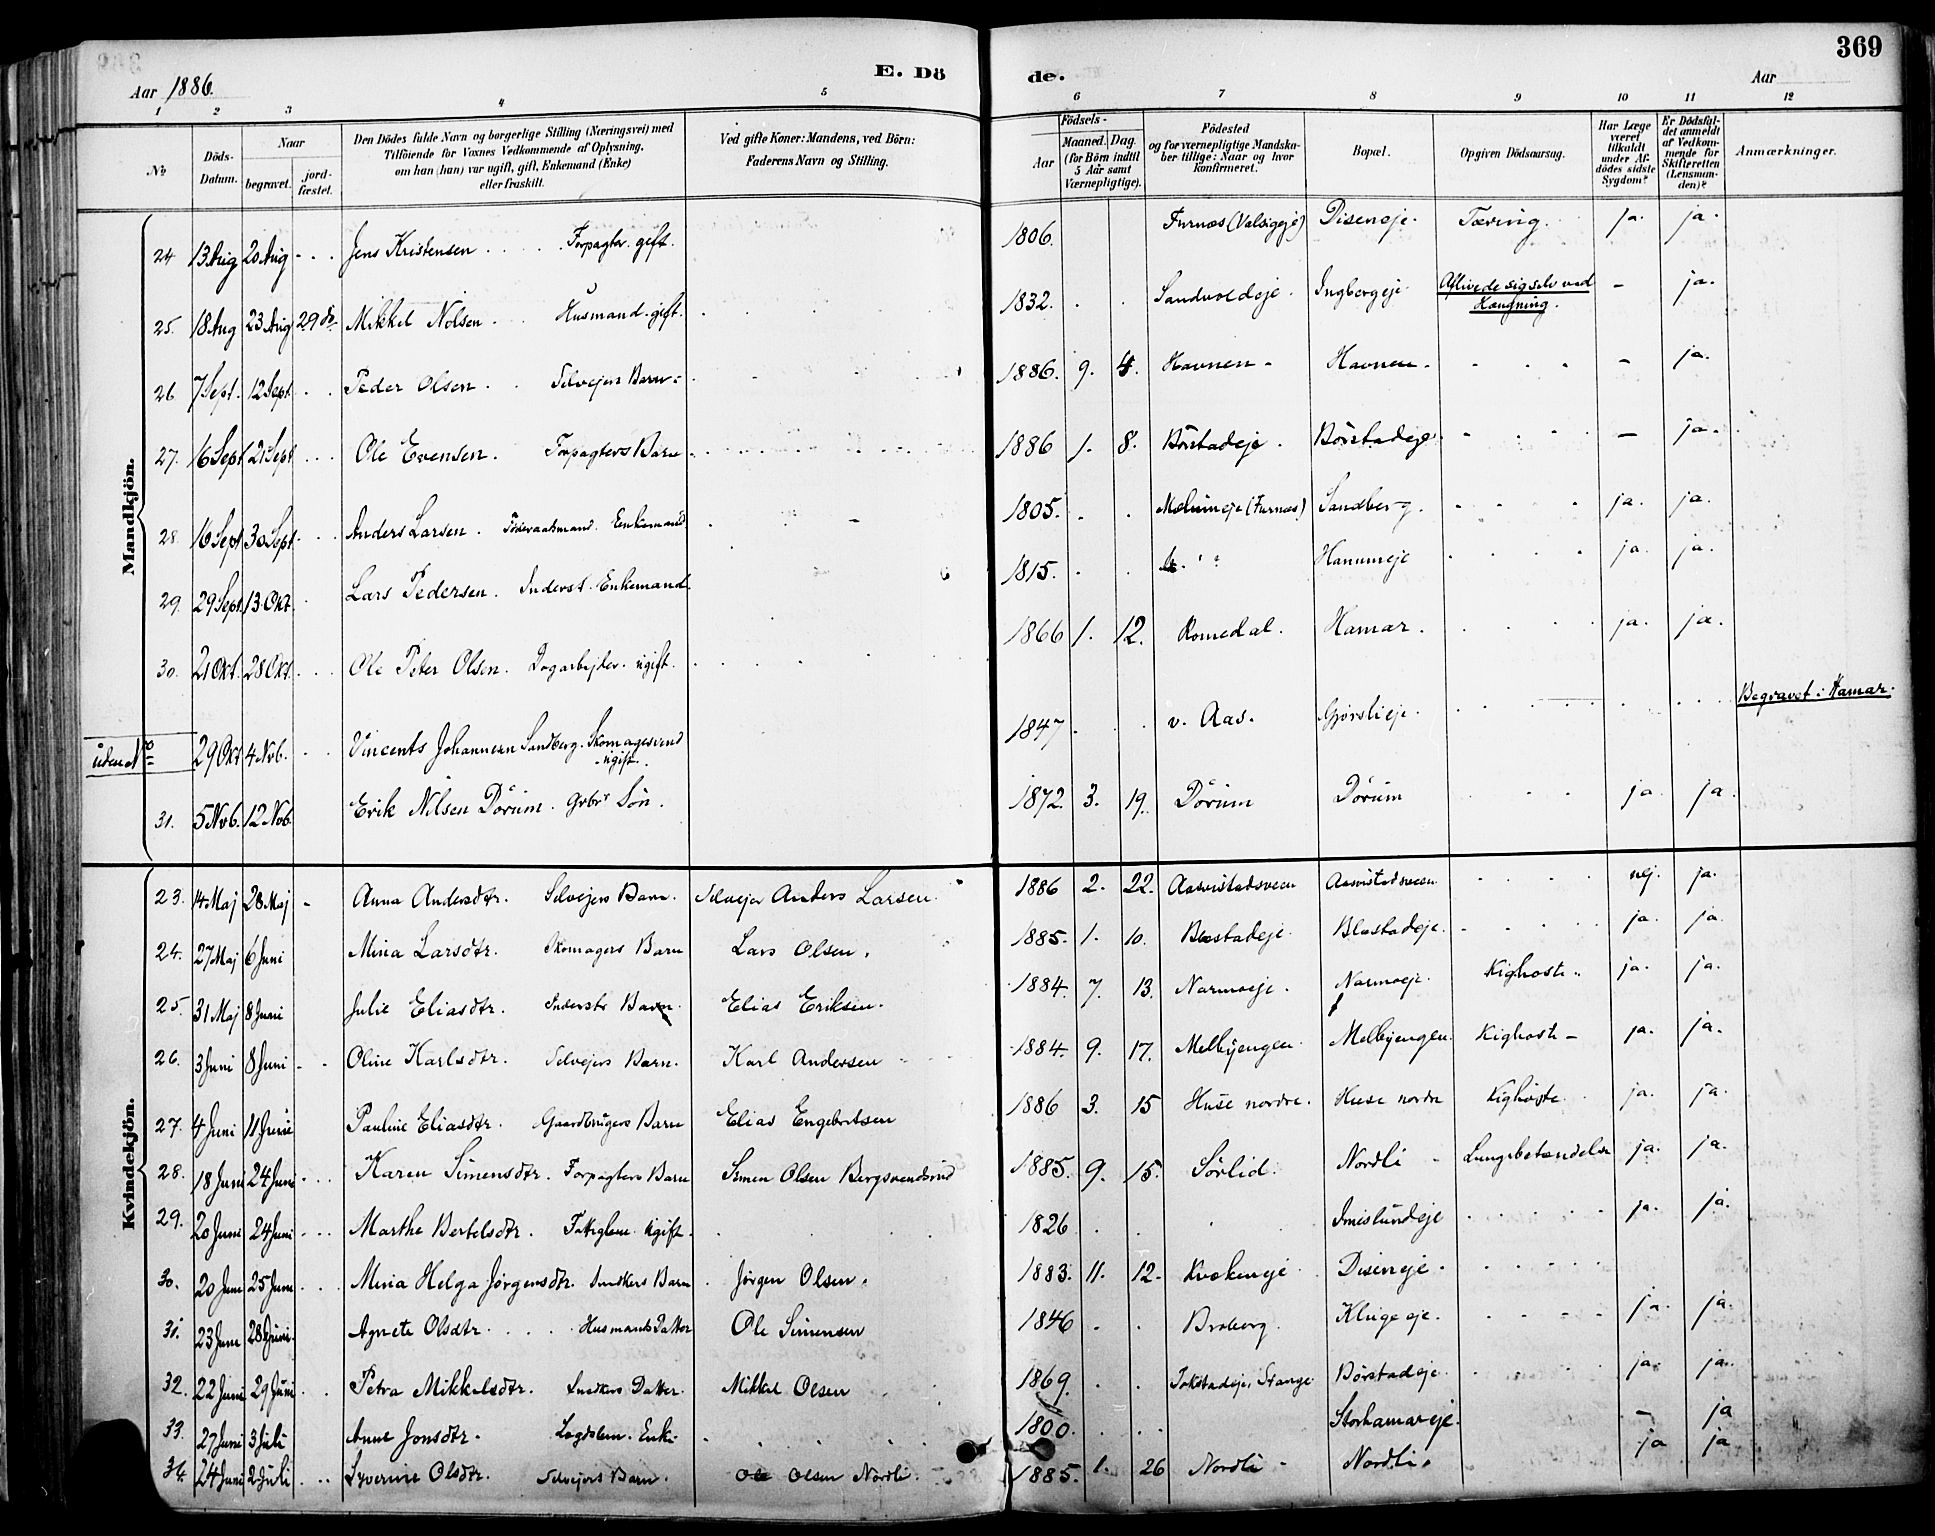 369
E. Dö de.
Aar 1886.
Aar
1 2 3 4 5 6 7 8 9 10 11 12
No
Döds-Datum.
Naar
begravet.
jordfæstet.
Den Dödes fulde Navn og borgerlige Stilling (Næringsvei) med
Tilföiende for Voxnes Vedkommende af Oplysning,
om han (hun) var ugift, gift, Enkemand (Enke)
eller fraskilt.
Ved gifte Koner: Mandens, ved Börn:
Faderens Navn og Stilling.
Födsels-
Aar
Maaned. Dag.
(for Börn indtil
5 Aar samt
Værnepligtige).
Födested
og for værnepligtige Mandska-
ber tillige: Naar og hvor
konfirmeret.
Bopæl.
Opgiven Dödsaarsag.
Har Læge
været
tilkaldt
under Af-
dödes sidste
Sygdom?
Er Dödsfal-
det anmeldt
af Vedkom-
mende for
Skifteretten
(Lensman-
den)?
Anmærkninger.
Mandkjön.
24 13 Aug 20 Aug Jens Kristensen Forpagter. gift. 1806. Furnæs (Valsigeje) Diseneje. Tæring. ja. ja.
25. 18 Aug 23 Aug 29 do Mikkel Nilsen Husmand. gift. 1832. Sandvoldeje. Ingbergeje Aflivede sig selv ved Hængning. - ja.
26 7 Sept. 12 Sept. Peder Olsen. Selvejers Barn 1886. 9. 4. Havnen Havnen. - ja.
27. 16 Sept 21 Sept Ole Evensen. Forpagters Barn 1886 1. 8. Börstadeje. Börstadeje. - ja.
28. 16 Sept 30 Sept Anders Larsen. Föderaadsmand. Enkemand 1805. (Furnæs) Sandberg. ja. ja.
29. 29 Sept. 13 Okt. Lars Pedersen. Inderst. Enkemand. 1815. ja. ja.
30. 21 Okt. 28 Okt. Ole Peter Olsen. Dagarbejder. ugift. 1866 1. 12. Romedal. Hamar. ja. ja.
uden No 29 Okt 4 Nvb. Vincents Johannesen Sandberg. Skomagersvend ugift. 1847 v. Aas. Gjörslieje. Begravet i Hamar.
31. 5 Nvb. 12 Nvb Erik Nilsen Dörum. Gvbr Sön. 1872. 3. 19. Dörum Dörum ja. ja.
Kvindekjön.
23. 14 Maj 28 Maj Anna Andersdtr. Selvejers Barn. Selvejer Anders Larsen. 1886 2. 22. Aasvistadsveen Aasvistadsveen nej. ja.
24. 27 Maj 6 Juni Mina Larsdtr. Skomagers Barn Lars Olsen. 1885. 1. 10. Blæstadeje. Blæstadeje. ja. ja.
25. 31 Maj 8 Juni Julie Eliasdtr. Inderste Barn. Elias Eriksen. 1884. 7. 13. Narmoeje. Narmoeje. Kighoste ja. ja.
26. 3 Juni 8 Juni Oline Karlsdtr. Selvejers Barn. Karl Andersen 1884. 9. 17. Melbyengen Melbyengen Kighoste ja. ja.
27. 4 Juni 11 Juni Pauline Eliasdtr. Gaardbrugers Barn Elias Engebretsen 1886 3. 15 Huse nordre. Huse nordre Kighoste ja. ja.
28. 18 Juni 24 Juni Karen Simensdtr. Forpagters Barn Simen Olsen Bergsvendsrud 1885. 9. 15. Sörlid. Nordli Lungebetændelse ja. ja.
29. 20 Juni 24 Juni Marthe Bertelsdtr. Fattiglem. ugift. 1826 Imislundeje ja. ja.
30. 20 Juni 25 Juni Mina Helga Jörgensdtr. Snedkers Barn Jörgen Olsen. 1883. 11. 12. Kvækeneje Diseneje.
31. 23 Juni 28 Juni. Agnete Olsdtr. Husmands Datter Ole Simensen 1846 Broberg. Klugeeje. ja. ja.
32. 22 Juni 29 Juni Petra Mikkelsdtr. Snedkers Datter. Mikkel Olsen 1869. Stange Börstadeje. ja. ja.
33. 27 Juni 3 Juli Anne Jonsdtr. Lægdslem. Enke 1800. Storhamareje. - ja
34. 24 Juni 2 Juli Syverine Olsdtr. Selvejers Barn. Ole Olsen Nordli. 1885. 1. 26 Nordli Nordli. ja ja